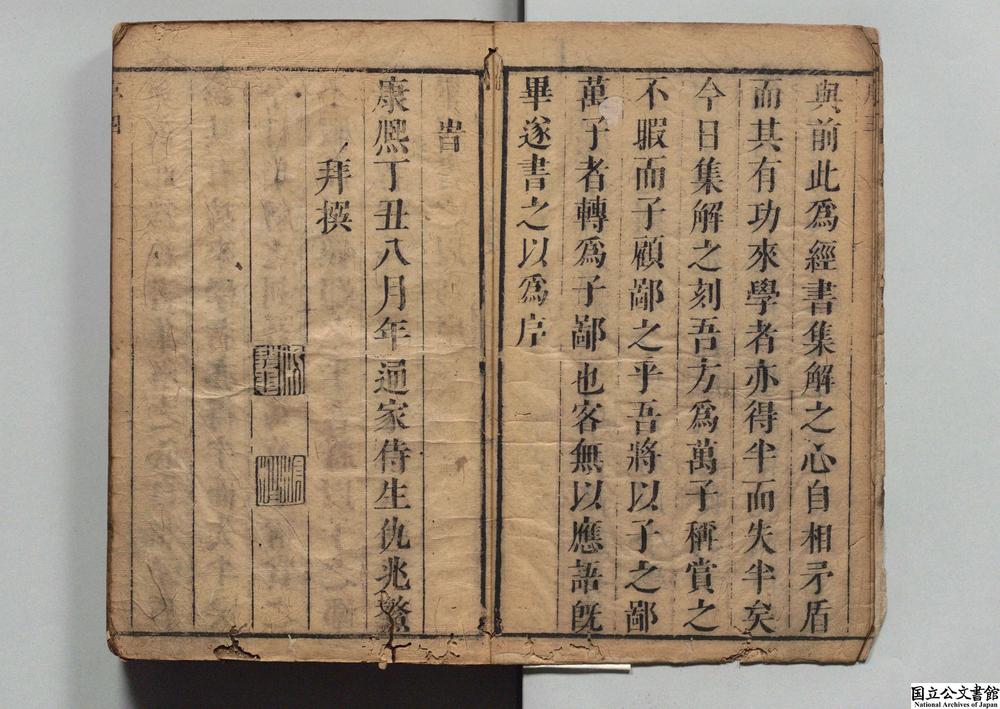 與前此爲經書集解之心自相矛盾
而其有功來學者亦得半而失半矣
今日集解之刻吾方爲萬子稱賞之
不暇而子顧鄙之乎吾將以子之鄙
萬子者轉爲子鄙也客無以應語旣
畢遂書之以爲序
旹
康熙丁丑八月年通家侍生仇兆鰲
拜撰
国立公文書館
National Archives of Japan